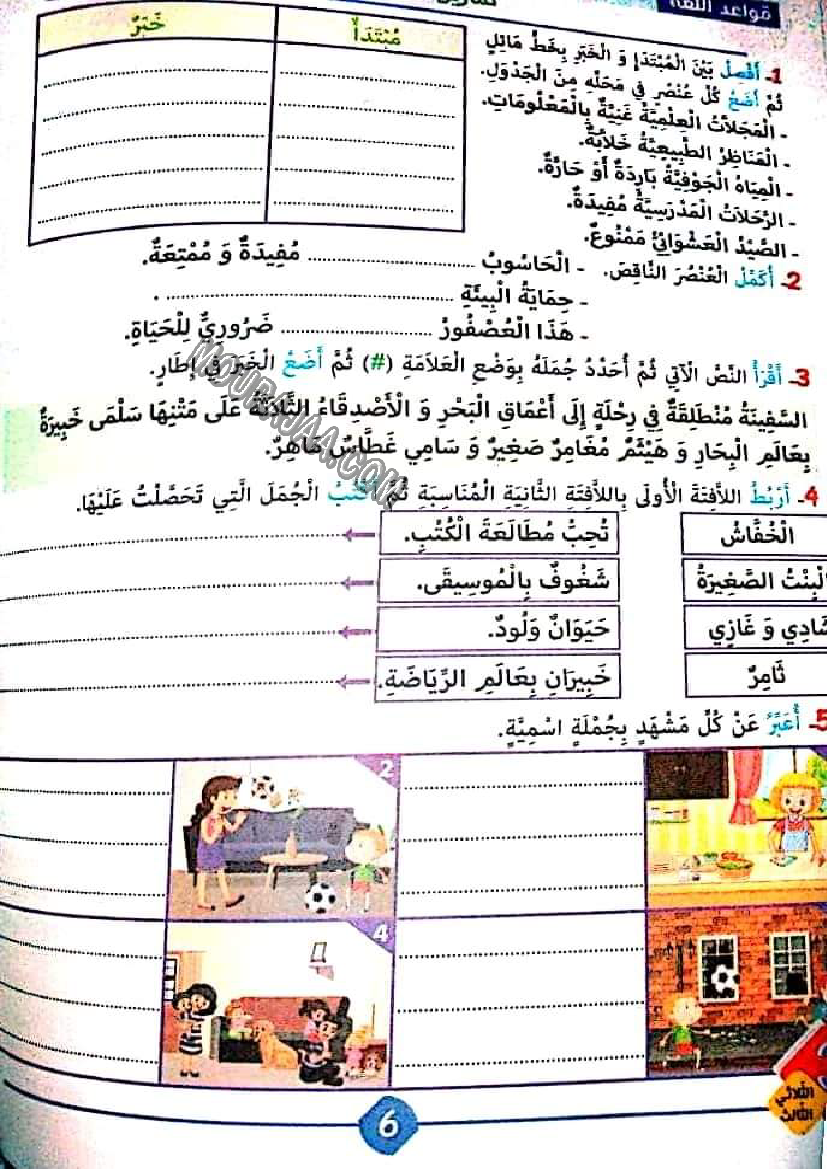 قواعد اللغة
مُبْتَدَأٌ
خَبَرٌ
1- أَفْصِلُ بَيْنَ الْمُبْتَدَإِ وَ الْخَبَرِ بِخَطٍّ مَائِلٍ
ثُمَّ أَضَعُ كُلَّ عُنْصُرٍ فِي مَحَلِّهِ مِنَ الْجَدْوَلِ.
- الْمَجَلَّاتُ الْعِلْمِيَّةُ غَنِيَّةٌ بِالْمَعْلُومَاتِ.
- الْمَنَاظِرُ الطَّبِيعِيَّةُ خَلَّابَةٌ.
- الْمِيَاهُ الْجَوْفِيَّةُ بَارِدَةٌ أَوْ حَارَّةٌ.
- الرَّحَلَاتُ الْمَدْرَسِيَّةُ مُفِيدَةٌ.
- الصَّيْدُ الْعَشْوَائِيُّ مَمْنُوعٌ.
2- أُكْمِلُ الْعُنْصُرَ النَّاقِصَ. - الْحَاسُوبُ ........................ مُفِيدَةٌ وَ مُمْتِعَةٌ.
- حِمَايَةُ الْبِيئَةِ ........................ .
- هَذَا الْعُصْفُورُ ........................ ضَرُورِيٌّ لِلْحَيَاةِ.
3- أَقْرَأُ النَّصَّ الْآتِي ثُمَّ أُحَدِّدُ جُمَلَهُ بِوَضْعِ الْعَلَامَةِ (#) ثُمَّ أَضَعُ الْخَبَرَ فِي إِطَارٍ.
السَّفِينَةُ مُنْطَلِقَةٌ فِي رِحْلَةٍ إِلَى أَعْمَاقِ الْبَحْرِ وَ الْأَصْدِقَاءُ الثَّلَاثَةُ عَلَى مَتْنِهَا سَلْمَى خَبِيرَةٌ
بِعَالَمِ الْبِحَارِ وَ هَيْثَمُ مُغَامِرٌ صَغِيرٌ وَ سَامِي غَطَّاسٌ مَاهِرٌ.
MOURAJAA.COM
4- أَرْبُطُ اللَّافِتَةَ الْأُولَى بِاللَّافِتَةِ الثَّانِيَةِ الْمُنَاسِبَةِ ثُمَّ أَكْتُبُ الْجُمَلَ الَّتِي تَحَصَّلْتُ عَلَيْهَا.
الْخُفَّاشُ
تُحِبُّ مُطَالَعَةَ الْكُتُبِ.
الْبِنْتُ الصَّغِيرَةُ
شَغُوفٌ بِالْمُوسِيقَى.
شَادِي وَ غَازِي
حَيَوَانٌ وَلُودٌ.
ثَامِرٌ
خَبِيرَانِ بِعَالَمِ الرِّيَاضَةِ.
5- أُعَبِّرُ عَنْ كُلِّ مَشْهَدٍ بِجُمْلَةٍ اسْمِيَّةٍ.
2
4
6
الثلاثي
الثالث